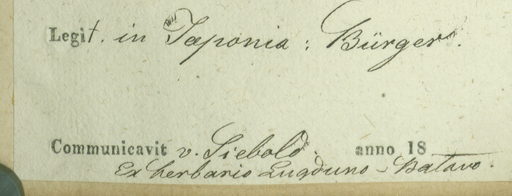 Legit. in Japonia: Bürger.
Communicavit v. Siebold. anno 18
Ex herbario Lugduno-Batavo.